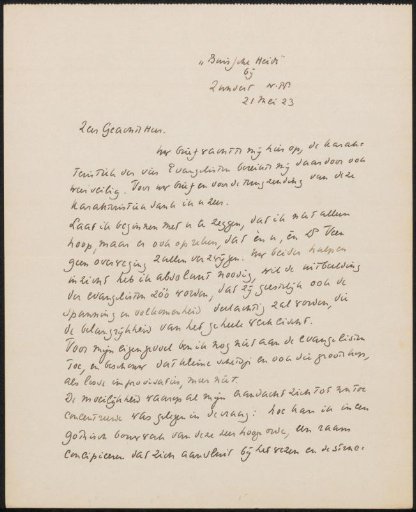 „Buissche Heide"
bij
Zundert N.Br
21 Mei 23
Zeer Geachte Heer.
Uw brief wachtte mij hier op, de karak-
teristiek der vier Evangelisten bereikte mij daardoor ook
wer veilig. Voor uw brief en voor de toezending van deze
karakteristiek dank ik u zeer.
Laat ik beginnen met u te zeggen, dat ik niet alleen
hoop, maar er ook op reken, dat èn u, èn Dr Veen
geen overweging zullen verzwijgen. Uw beider helpen
inzicht heb ik absoluut noodig, wil de uitbeelding
der evangelisten zóó worden, dat zij geestelijk ook de
spanning en volkomenheid deelachtig zal worden, die
de belangrijkheid van het geheele werk eischt.
Voor mijn eigen gevoel ben ik nog niet aan de Evangelisten
toe, en beschouw dat kleine schetsje en ook die groote kop,
als losse improvisaties, meer niet.
De moeilijkheid waarop al mijn aandacht zich tot nu toe
concentreerde was gelegen in de vraag: hoe kan ik in een
gothisch bouwwerk van deze zeer hooge orde, een raam
concipieeren dat zich aansluit bij het wezen en de stren-